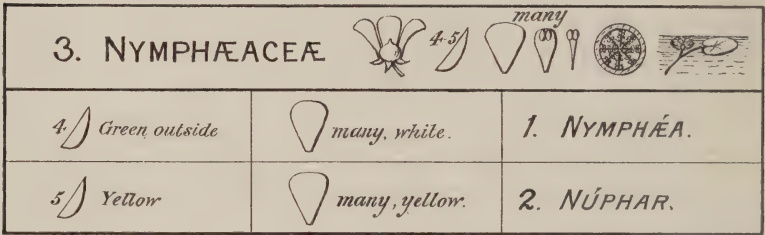 many
3. NYMPHÆACEÆ 4-5
4. Green outside many, white. 1. NYMPHǼA.
5 Yellow many, yellow. 2. NÚPHAR.